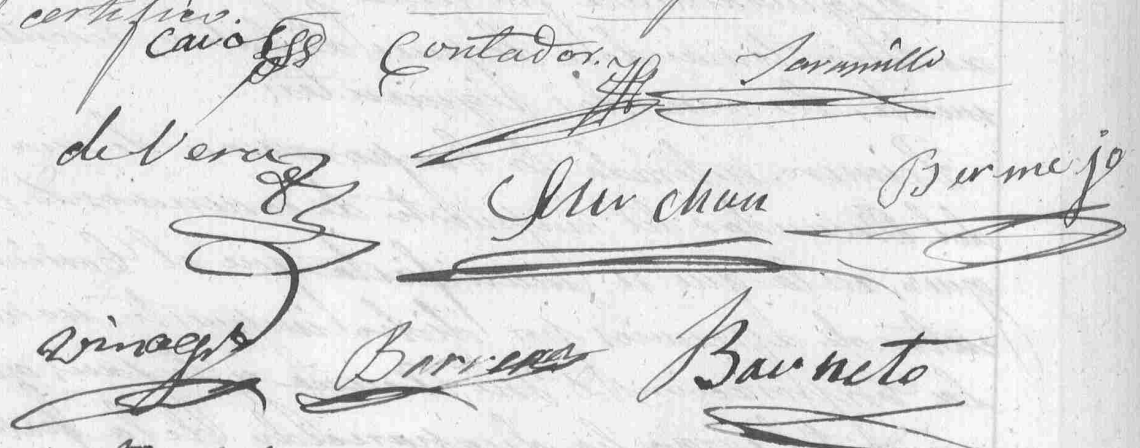 certifico.
Cavo Contador. Jaramillo
de Vera Gurchan Bermejo
Vinagre Barrera Barneto